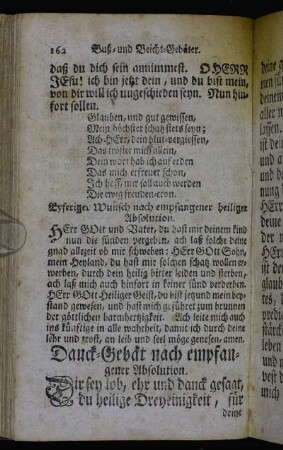 162 Buß- und Beicht-Gebäter.
daß du dich sein annimmest. O HERR
JESu! ich bin jetzt dein, und du bist mein,
von dir will ich ungeschieden seyn. Nun hin-
fort sollen.
Glauben, und gut gewissen,
Mein höchster schatz stets seyn;
Ach HErr, dein blut-vergiessen,
Das tröstet mich allein,
Dein wort hab ich auf erden
Das mich erfreuet schon,
Ich hoff, mir soll auch werden
Die ewig freuden-cron.
Eyferige Wunsch nach empfangener heiliger
Absolution.
HErr GOtt und Vater, du hast mir deinem kind
nun die sünden vergeben, ach laß solche deine
gnad allezeit ob mir schweben: HErr GOtt Sohn,
mein Heyland, du hast mir solchen schatz wollen er-
werben, durch dein heilig bitter leiden und sterben,
ach laß mich auch hinfort in keiner sünd verderben.
HErr GOtt Heiliger Geist, du bist jetzund mein bey-
stand gewesen, und hast mich geführet zum brunnen
der göttlichen barmhertzigkeit. Ach leite mich auch
ins künftige in alle wahrheit, damit ich durch deine
lehr und trost, an leib und seel möge genesen, amen.
Danck-Gebät nach empfan-
gener Absolution.
Dir sey lob, ehr und danck gesagt,
du heilige Dreyeinigkeit, für
deine